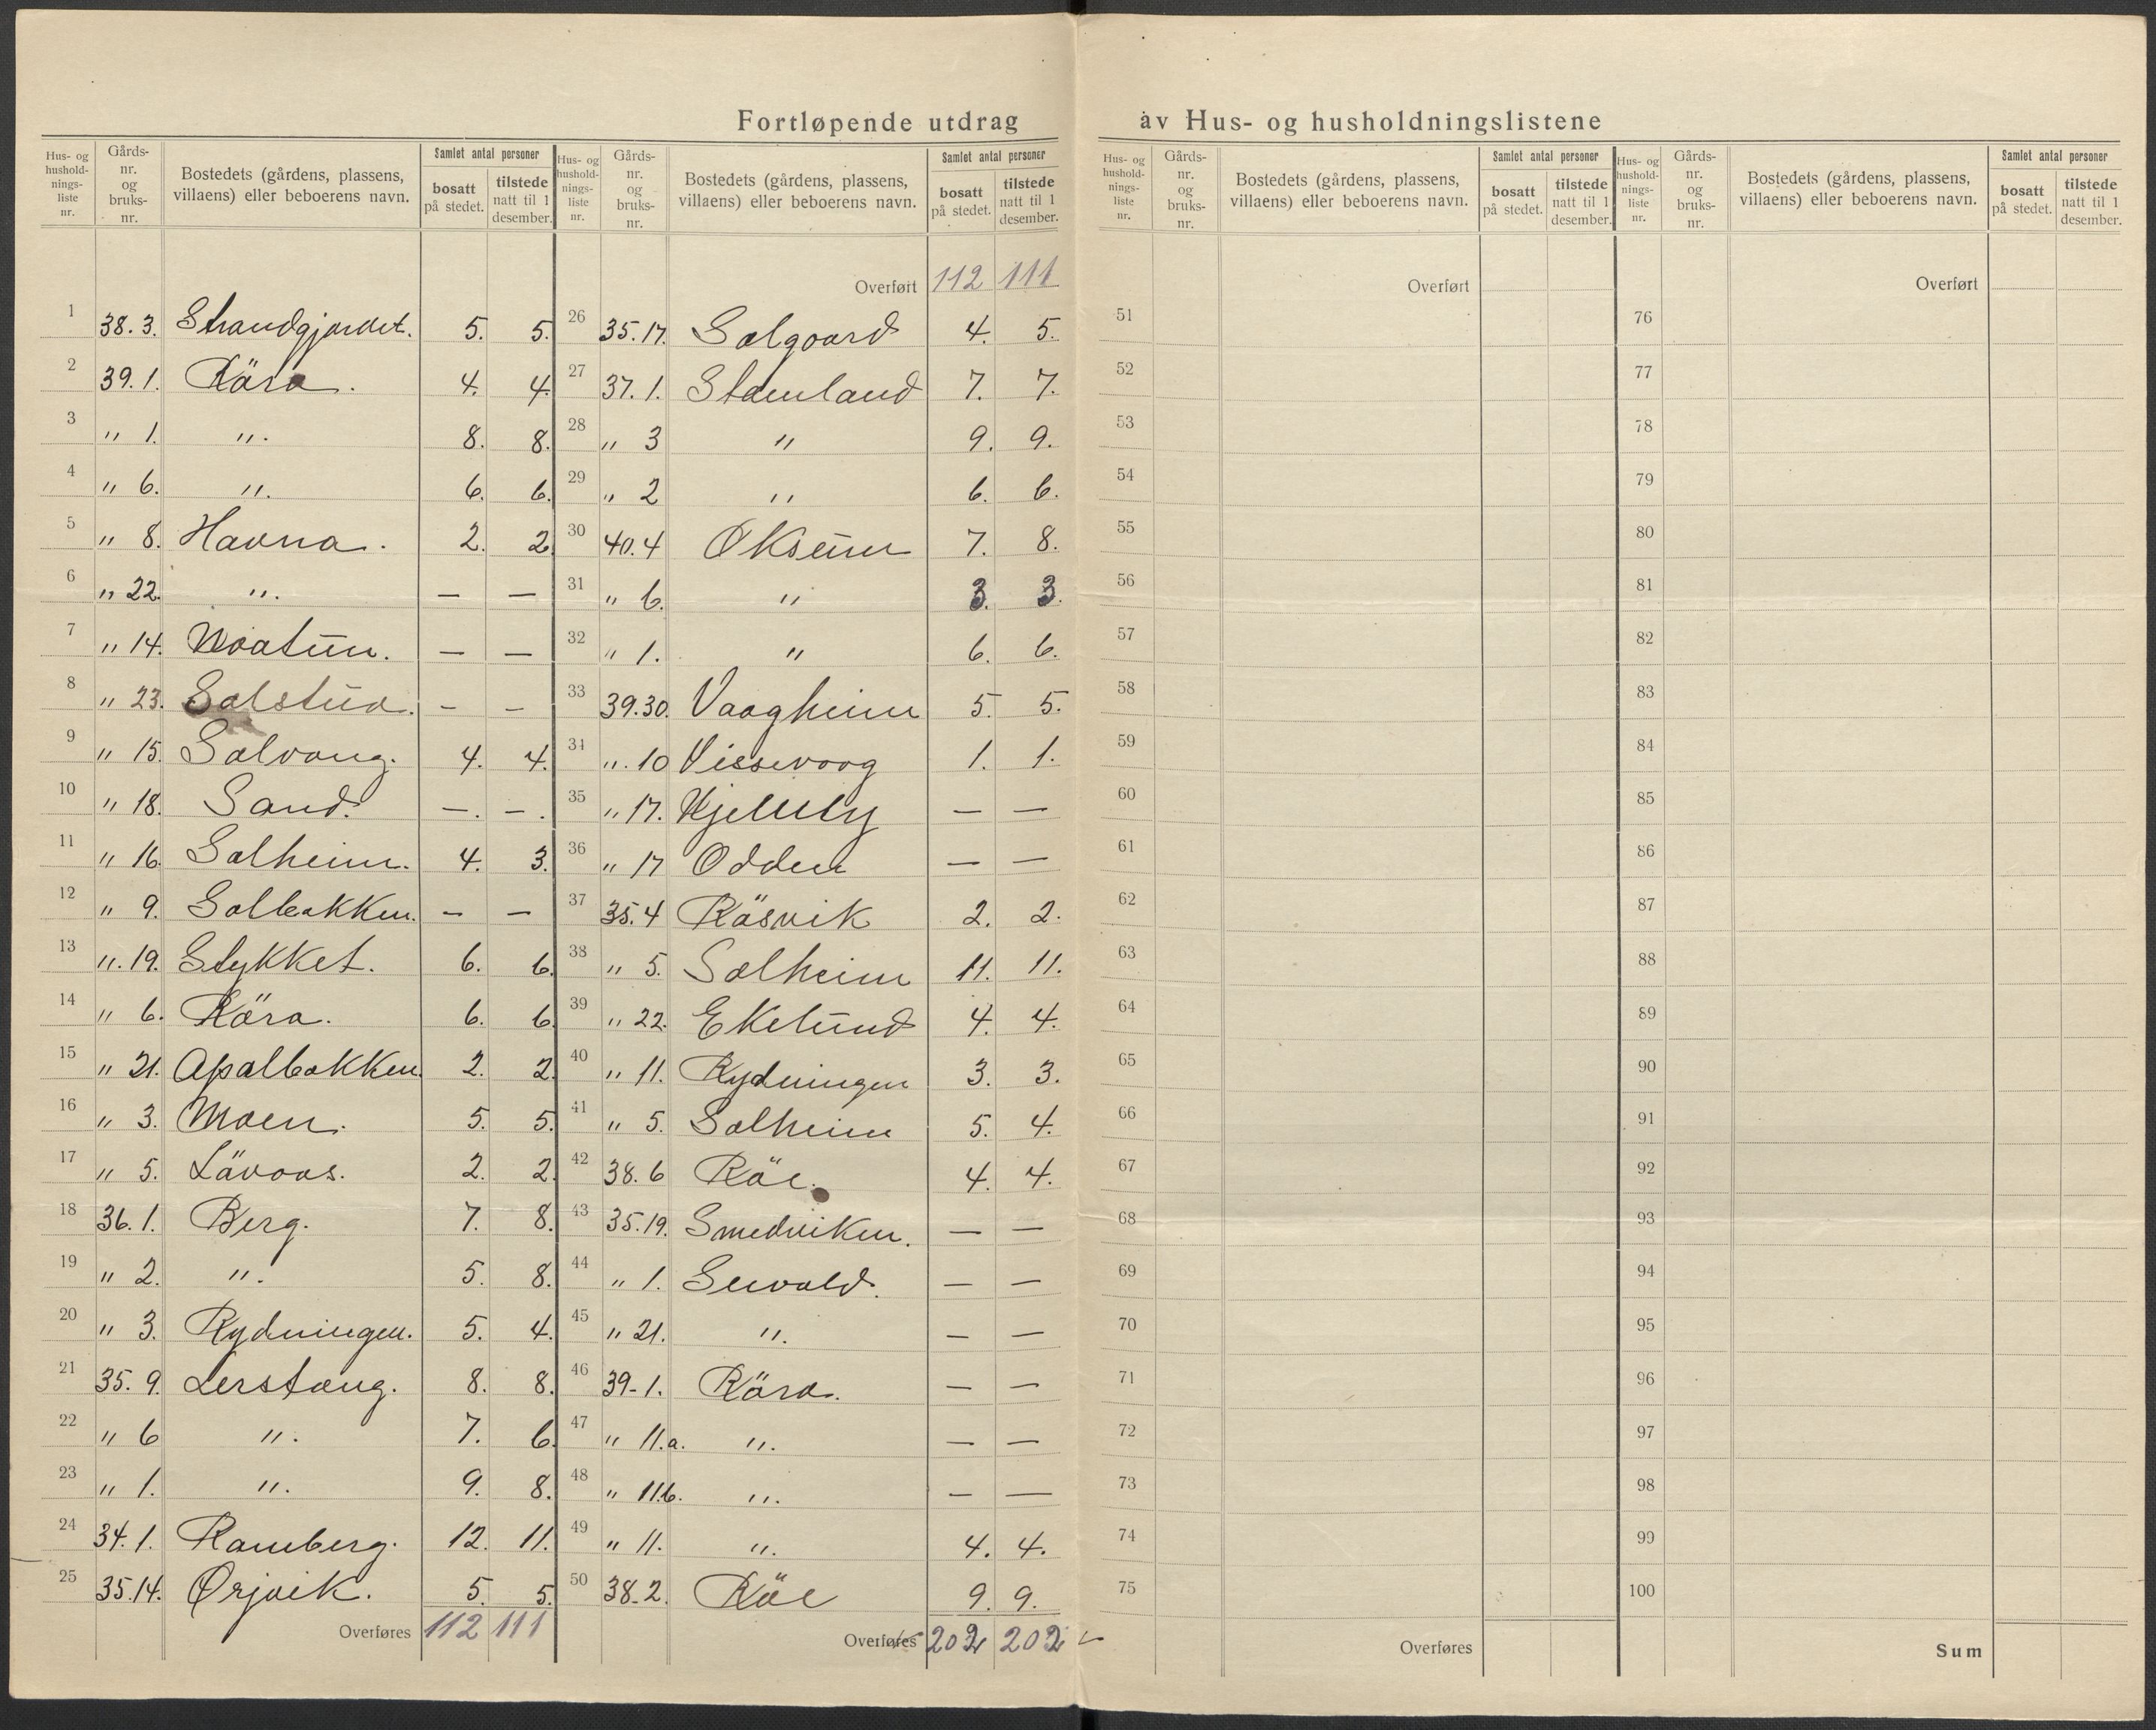 Fortløpende utdrag av Hus- og husholdningslistene
Hus- og hushold-nings-liste nr. | Gårds-nr. og bruks-nr. | Bostedets (gårdens, plassens, villaens) eller beboerens navn. | Samlet antal personer | bosatt på stedet. | tilstede natt til 1 desember.
1 38.3. Strandgjærdet. 5. 5.
2 39.1. Råra. 4. 4.
3 " 1. ". 8. 8.
4 " 6. ". 6. 6.
5 " 8. Havna. 2. 2
6 " 22. ". — —
7 " 14. Noatun. — —
8 " 23. Solstua. — —
9 " 15. Solvang. 4. 4.
10 " 18. Sand. —. —.
11 " 16. Solheim. 4. 3.
12 " 9. Solbakken. — —
13 ". 19. Stykket. 6. 6.
14 " 6. Råra. 6. 6.
15 " 21. Apalbakken. 2. 2.
16 " 3. Moen. 5. 5.
17 " 5. Låvaas. 2. 2.
18 36.1. Berg. 7. 8.
19 " 2. ". 5. 8.
20 " 3. Rydningen. 5. 4.
21 35.9. Lerstang. 8. 8.
22 " 6 ". 7. 6.
23 " 1. ". 9. 8.
24 34.1. Ramberg. 12. 11.
25 35.14. Ørjvik. 5. 5.
Overføres 112 111
Hus- og hushold-nings-liste nr. | Gårds-nr. og bruks-nr. | Bostedets (gårdens, plassens, villaens) eller beboerens navn. | Samlet antal personer | bosatt på stedet. | tilstede natt til 1 desember.
Overført 112 111
26 35.17. Solgaard 4. 5.
27 37.1. Stamland 7. 7.
28 " 3 " 9. 9.
29 " 2 " 6. 6.
30 40.4 Oksum 7. 8.
31 " 6. " 3. 3.
32 " 1. " 6. 6.
33 39.30. Vaagheim 5. 5.
34 ". 10 Vissevaag 1. 1.
35 " 17. Hjellely — —
36 " 17 Odden — —
37 35.4 Råsvik 2. 2.
38 " 5. Solheim 11. 11.
39 " 22. Ekelund 4. 4.
40 " 11. Rydningen 3. 3.
41 " 5. Solheim 5. 4.
42 38.6 Råe. 4. 4.
43 35.19. Smedviken. — —
44 " 1. Sevald. — —
45 " 21. ". — —
46 39-1. Råra. — —
47 " 11.a. ". — —
48 " 11.b. ". — —
49 " 11. ". 4. 4.
50 38-2. Råe 9. 9.
Overføres 202 202
Hus- og hushold-nings-liste nr. | Gårds-nr. og bruks-nr. | Bostedets (gårdens, plassens, villaens) eller beboerens navn. | Samlet antal personer | bosatt på stedet. | tilstede natt til 1 desember.
Overført
51
52
53
54
55
56
57
58
59
60
61
62
63
64
65
66
67
68
69
70
71
72
73
74
75
Overføres
Hus- og hushold-nings-liste nr. | Gårds-nr. og bruks-nr. | Bostedets (gårdens, plassens, villaens) eller beboerens navn. | Samlet antal personer | bosatt på stedet. | tilstede natt til 1 desember.
Overført
76
77
78
79
80
81
82
83
84
85
86
87
88
89
90
91
92
93
94
95
96
97
98
99
100
Sum